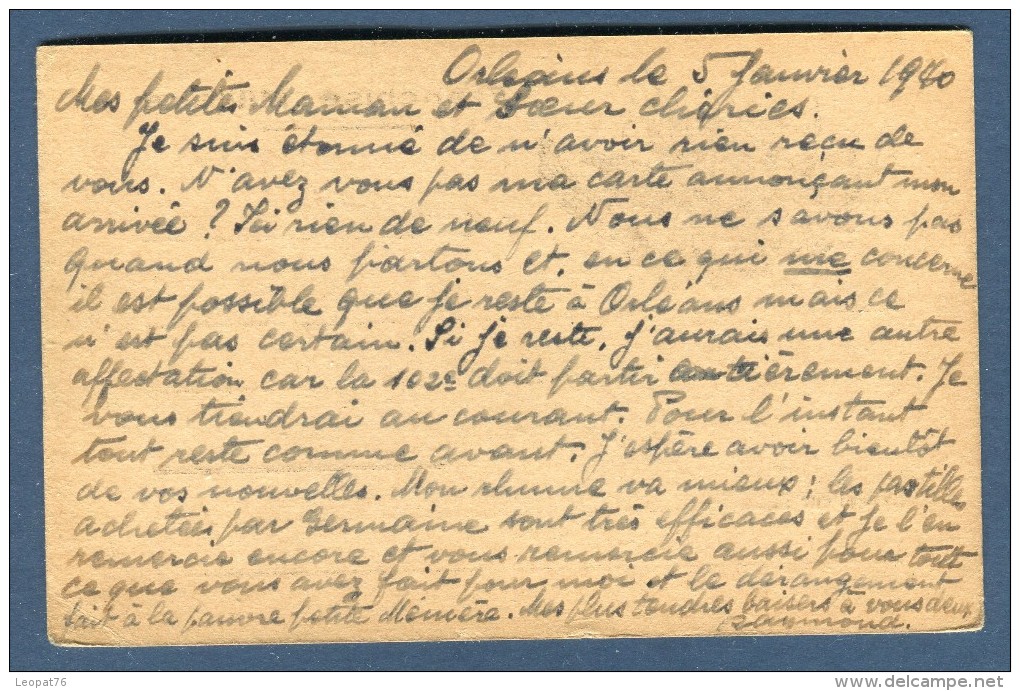 Orléans le 5 Janvier 1940
Mes petites Maman et Soeur chéries.
Je suis étonné de n'avoir rien reçu de
vous. N'avez vous pas ma carte annonçant mon
arrivée ? Ici rien de neuf. Nous ne savons pas
quand nous partons et, en ce qui me concerne
il est possible que je reste à Orléans mais ce
n'est pas certain. Si je reste, j'aurais une autre
affectation car la 102e doit partir entièrement. Je
vous tiendrai au courant. Pour l'instant
tout reste comme avant. J'espère avoir bientôt
de vos nouvelles. Mon rhume va mieux ; les pastilles
achetées par Germaine sont très efficaces et je l'en
remercie encore et vous remercie aussi pour tout
ce que vous avez fait pour moi et le dérangement
fait à la pauvre petite Mémère. Mes plus tendres baisers à vous deux.
Raymond.
Leopat76
delcampe.net